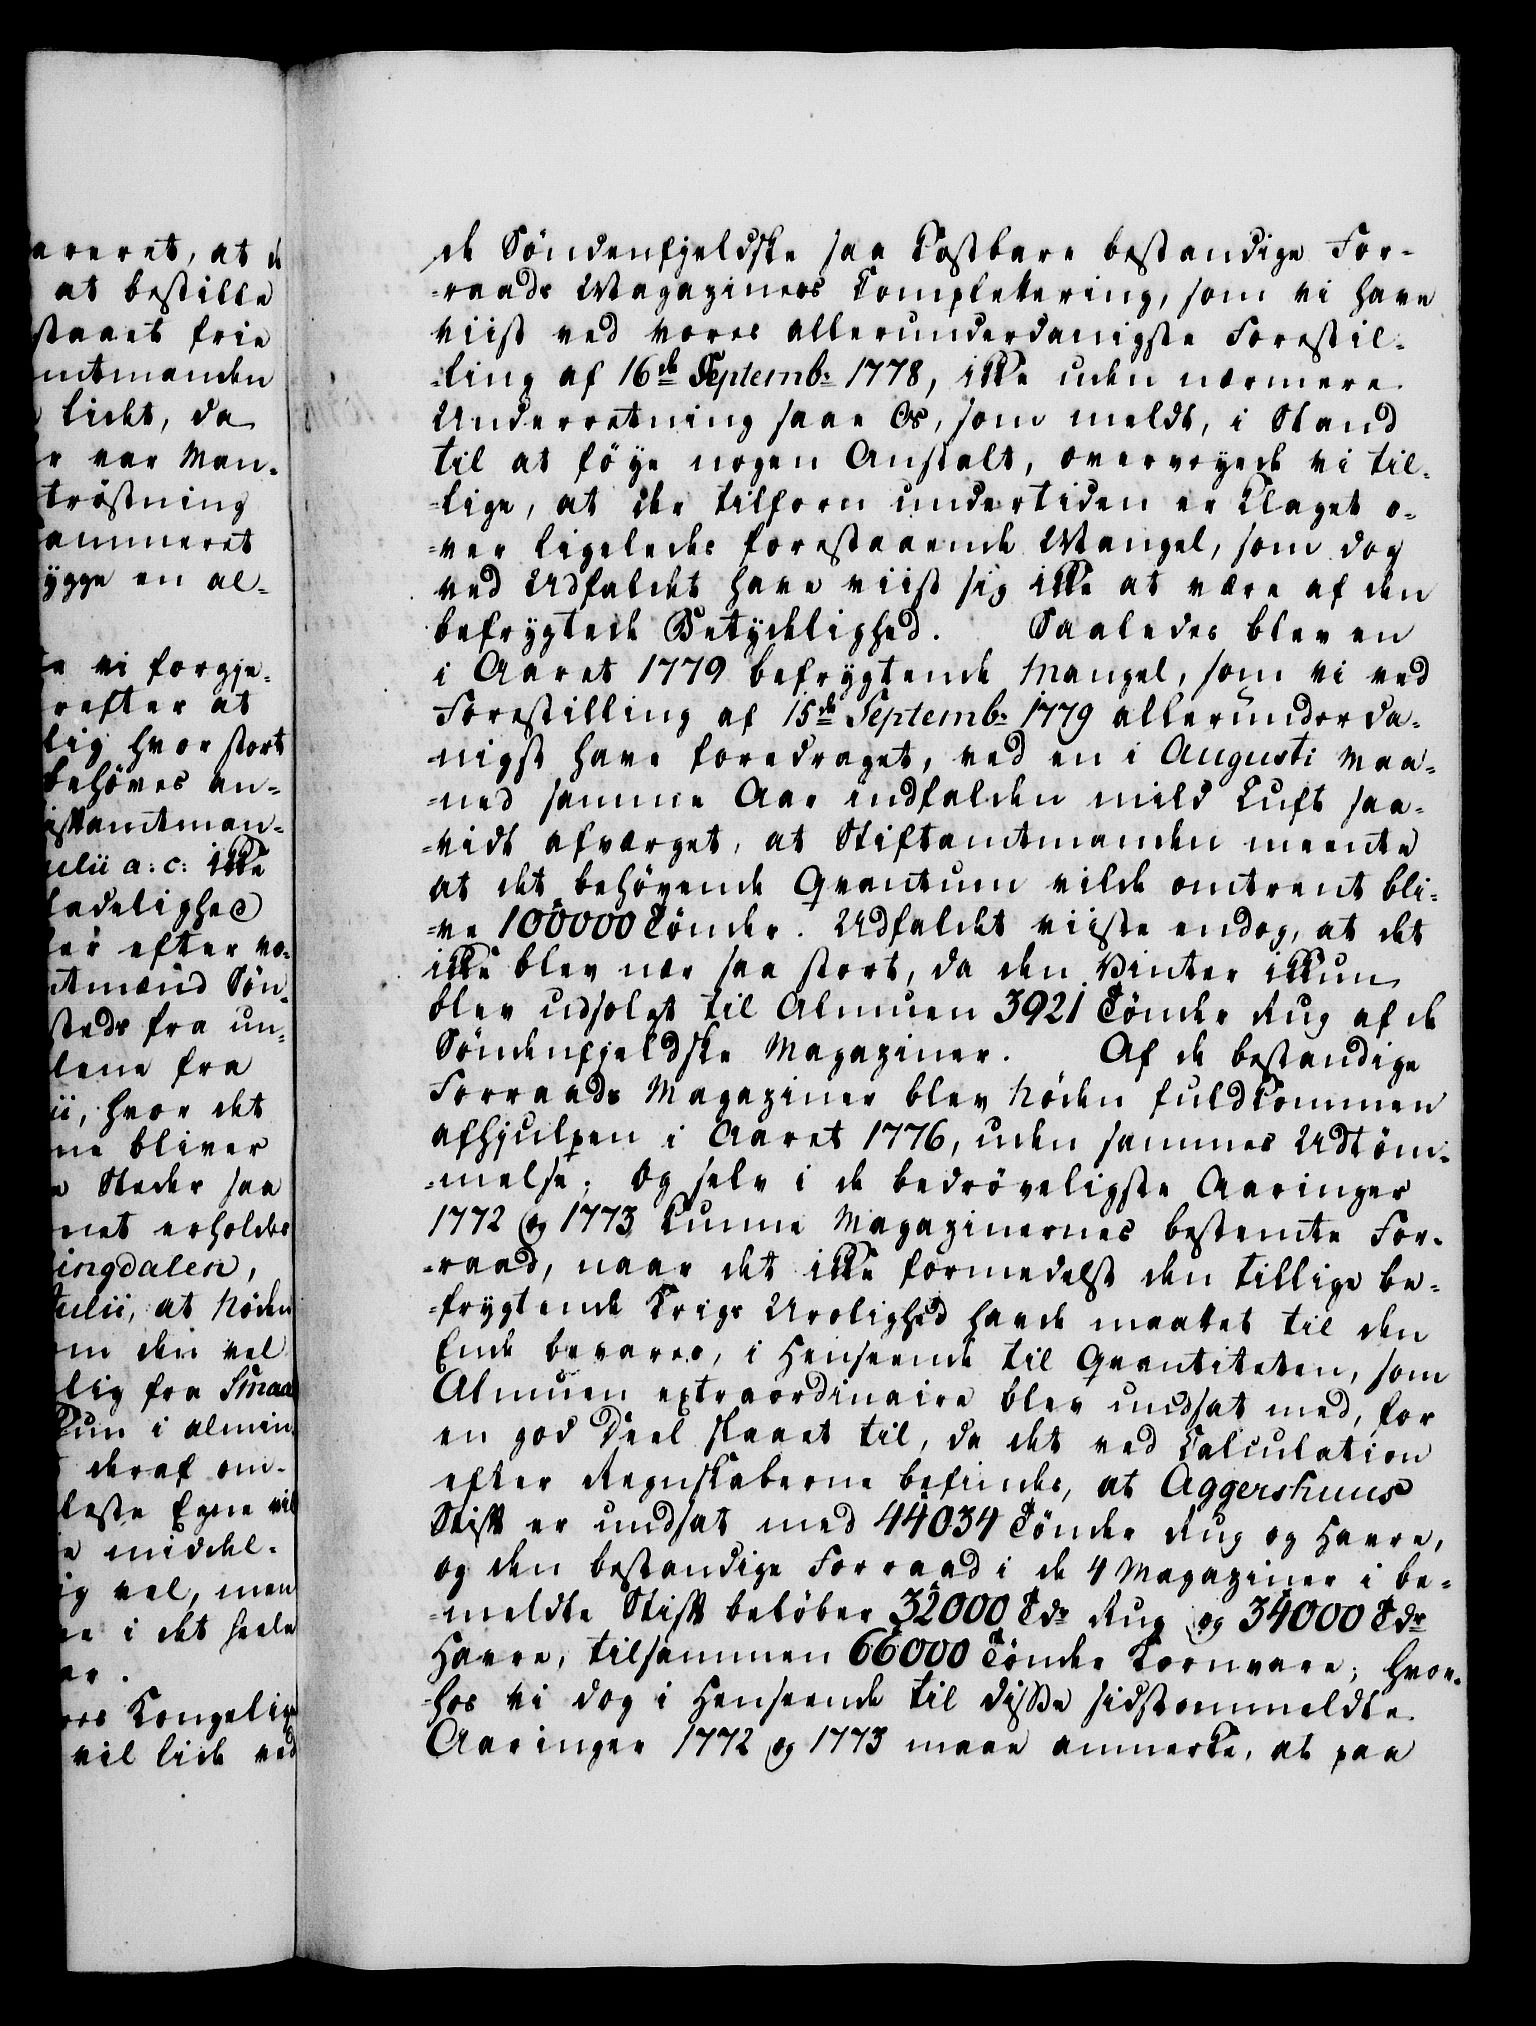 areret, at d
at bestille
staaet frie
mtmanden
lidet, da
r var Man-
tröstning
ammeret
ygge en al-
e vi forgje-
refter at
lig hvor stort
behöves an-
iftamtman-
ulii a: c: ikke
ladelighed
er efter vo-
tmænd Sön-
steds fra un-
lene fra
ii, hvor det
ne bliver
e Steder saa
net erholdes
ingdalen,
Julii, at Nöden
om den vel
lig fra Smaa
kun i almin
deraf om-
leste Egne vil
e middel-
ig vel, men
re i det heele
er.
ores Kongelige
vil lide ved
de Söndenfjeldske saa kostbare bestandige For-
-raads Magaziners Completering, som vi have
viist ved vores allerunderdanigste Forestil-
-ling af 16de Septemb: 1778, ikke uden nærmere
Underretning saae Os, som meldt, i Stand
til at föye nogen Anstalt, overveyede vi til-
-lige, at der tilforn undertiden er klaget o-
-ver ligeledes forestaaende Mangel, som dog
ved Udfaldet have viist sig ikke at være af den
befrygtede Betydelighed. Saaledes blev en
i Aaret 1779 befrygtende Mangel, som vi ved
Forestilling af 15de Septemb: 1779 allerunderda-
-nigst have foredraget, ved en i Augusti Maa-
-ned samme Aar indfalden mild Luft saa-
-vidt afværget, at Stiftamtmanden meente
at det behövende Qvantum vilde omtrent bli-
-ve 100000 Tönder. Udfaldet viiste endog, at det
ikke blev nær saa stort, da den Vinter ikkun
blev udsolgt til Almuen 3921 Tönder Rug af de
Söndenfjeldske Magaziner. Af de bestandige
Forraads Magaziner blev Nöden fuldkommen
afhjulpen i Aaret 1776, uden sammes Udtöm-
-melse; og selv i de bedröveligste Aaringer
1772 og 1773 kunne Magazinernes bestemte For-
-raad, naar det ikke formedelst den tillige be-
-frygtende Krigs Urolighed havde maattet til den
Ende bevares, i Henseende til Qvantiteten, som
Almuen extraordinaire blev undsat med, for
en god Deel slaaet til, da det ved Calculation
efter Regnskaberne befindes, at Aggershuus
Stift er undsat med 44034 Tönder Rug og Havre,
og den bestandige Forraad i de 4 Magaziner i be-
-meldte Stift belöber 32000 Tdr Rug og 34000 Tdr
Havre, tilsammen 66000 Tönder Kornvare; hvor-
-hos vi dog i Henseende til disse sidstommeldte
Aaringer 1772 og 1773 maae anmerke, at paa